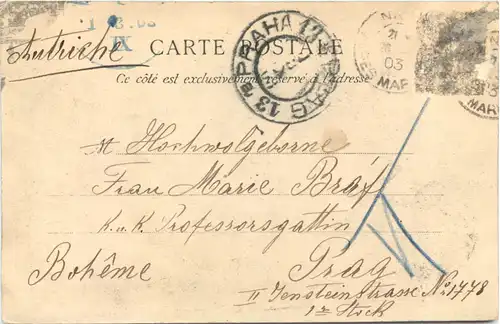 Autriche
IX
CARTE POSTALE
Ce côté est exclusivement réservé à l'adresse
PRAHA PRAG 13
03
MAR
MAR
Hochwolgeborne
Frau Marie Bráf
K. u. K. Professorsgattin
Bohême Prag
II Jensteinstrasse No. 1778
1r Stock